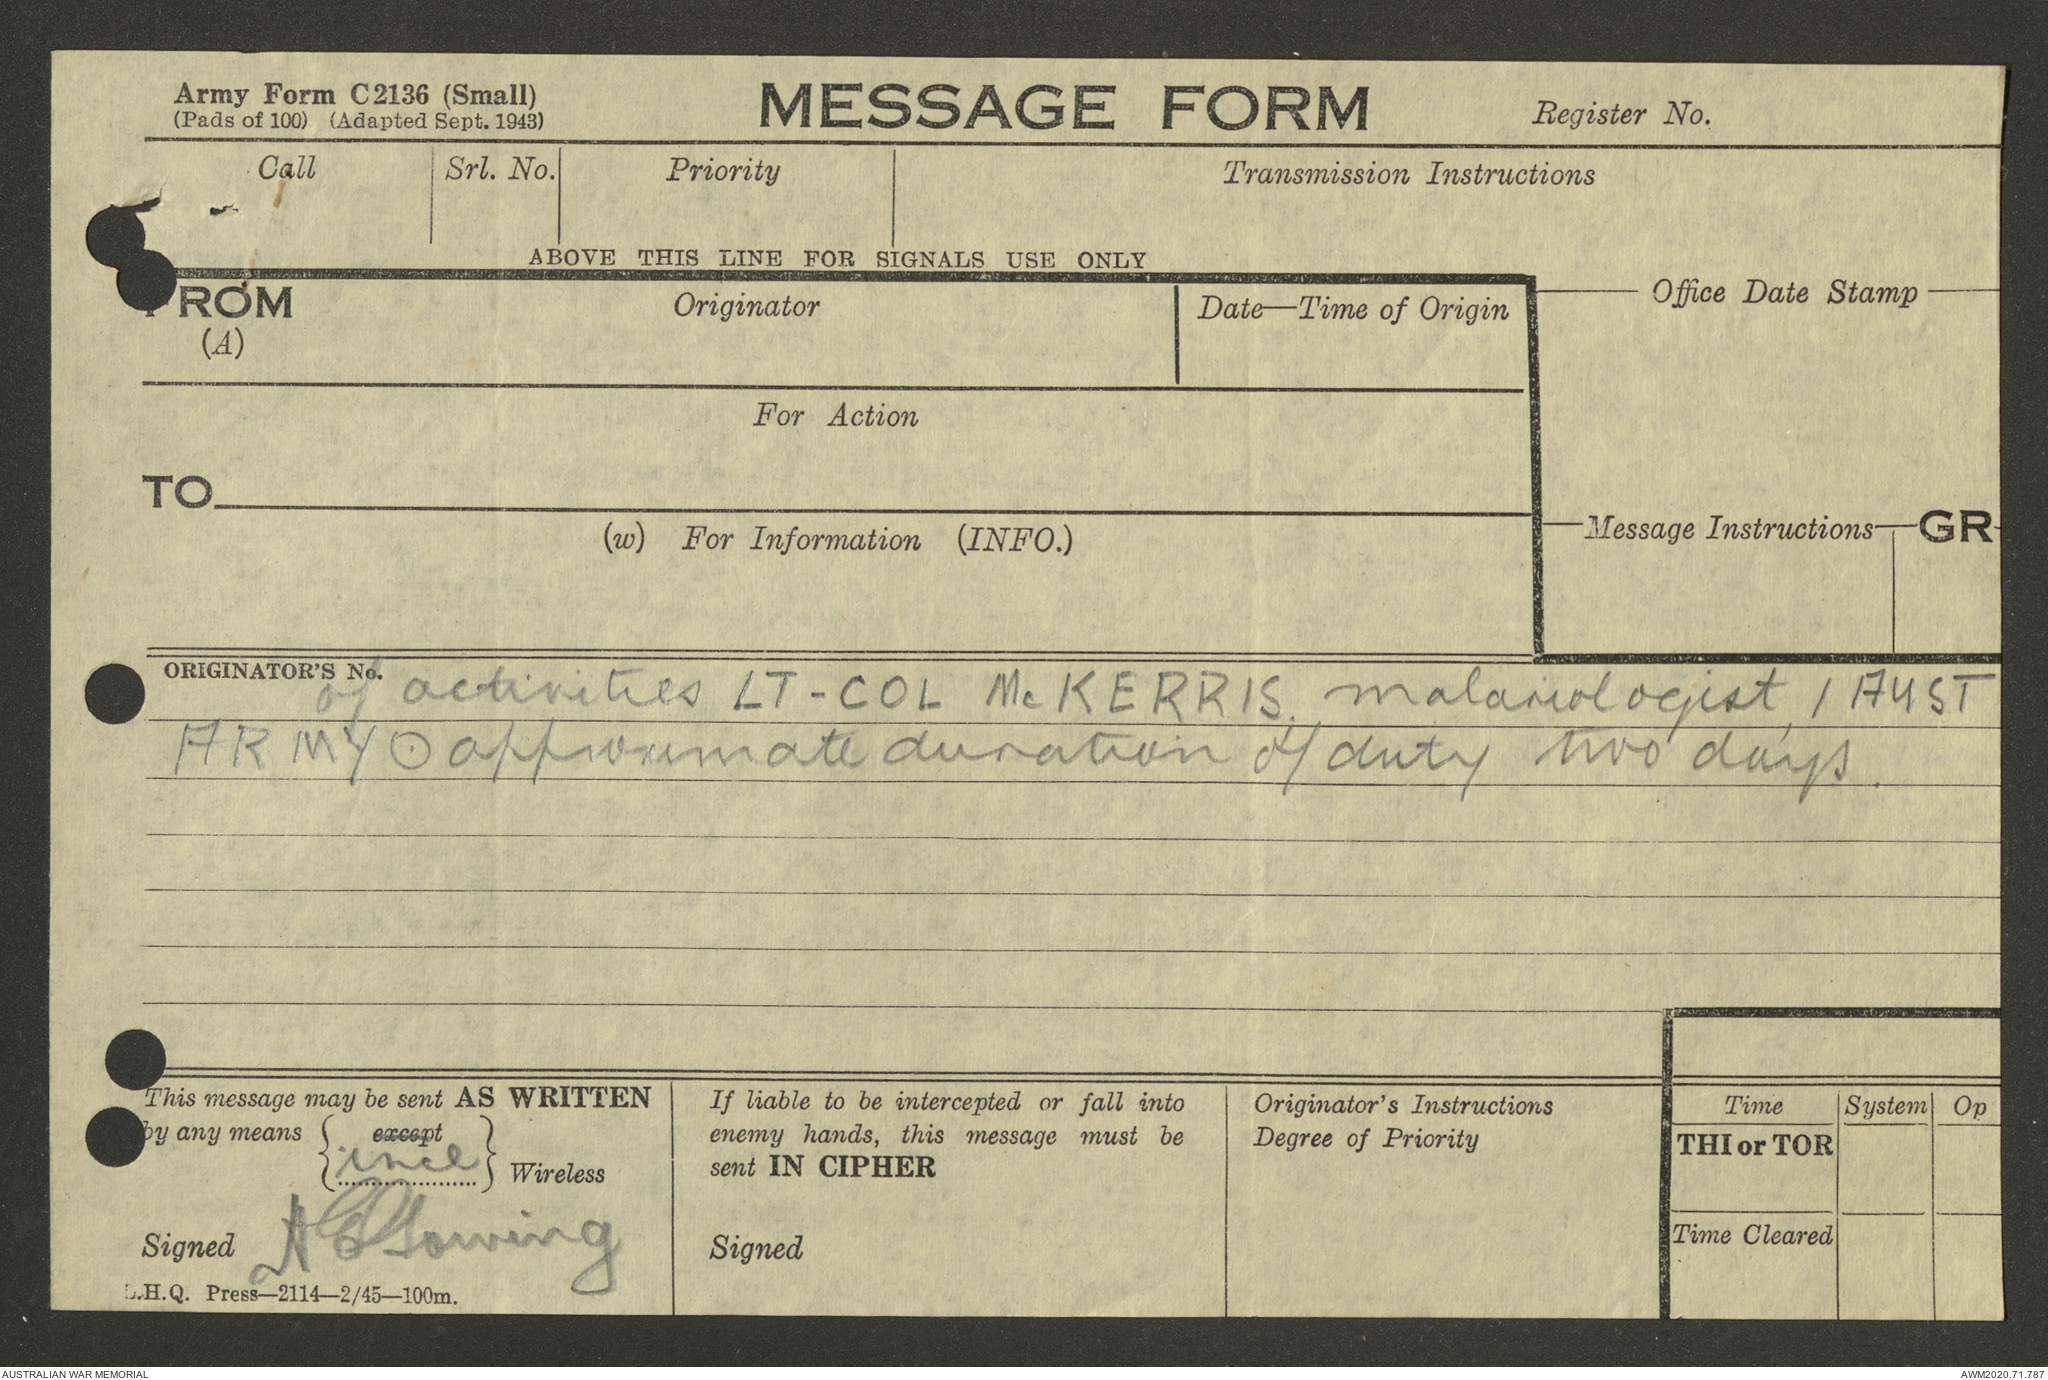 Army Form C2136 (Small)
(Pads of 100) (Adapted Sept. 1943)
MESSAGE FORM
Register No.
Call
Srl. No.
Priority
Transmission Instructions
ABOVE THIS LINE FOR SIGNALS USE ONLY
FROM
(A)
Originator
Date—Time of Origin
Office Date Stamp
For Action
TO
(w) For Information (INFO.)
Message Instructions
GR
ORIGINATOR'S No.
of activities LT-COL McKERRIS. malariologist, 1 AUST
ARMY ⊙ approximate duration of duty two days.
This message may be sent AS WRITTEN
by any means { except }
incl
Wireless
Signed
If liable to be intercepted or fall into
enemy hands, this message must be
sent IN CIPHER
Signed
Originator's Instructions
Degree of Priority
Time
System
Op
THI or TOR
Time Cleared
L.H.Q. Press—2114—2/45—100m.
AUSTRALIAN WAR MEMORIAL
AWM2020.71.787